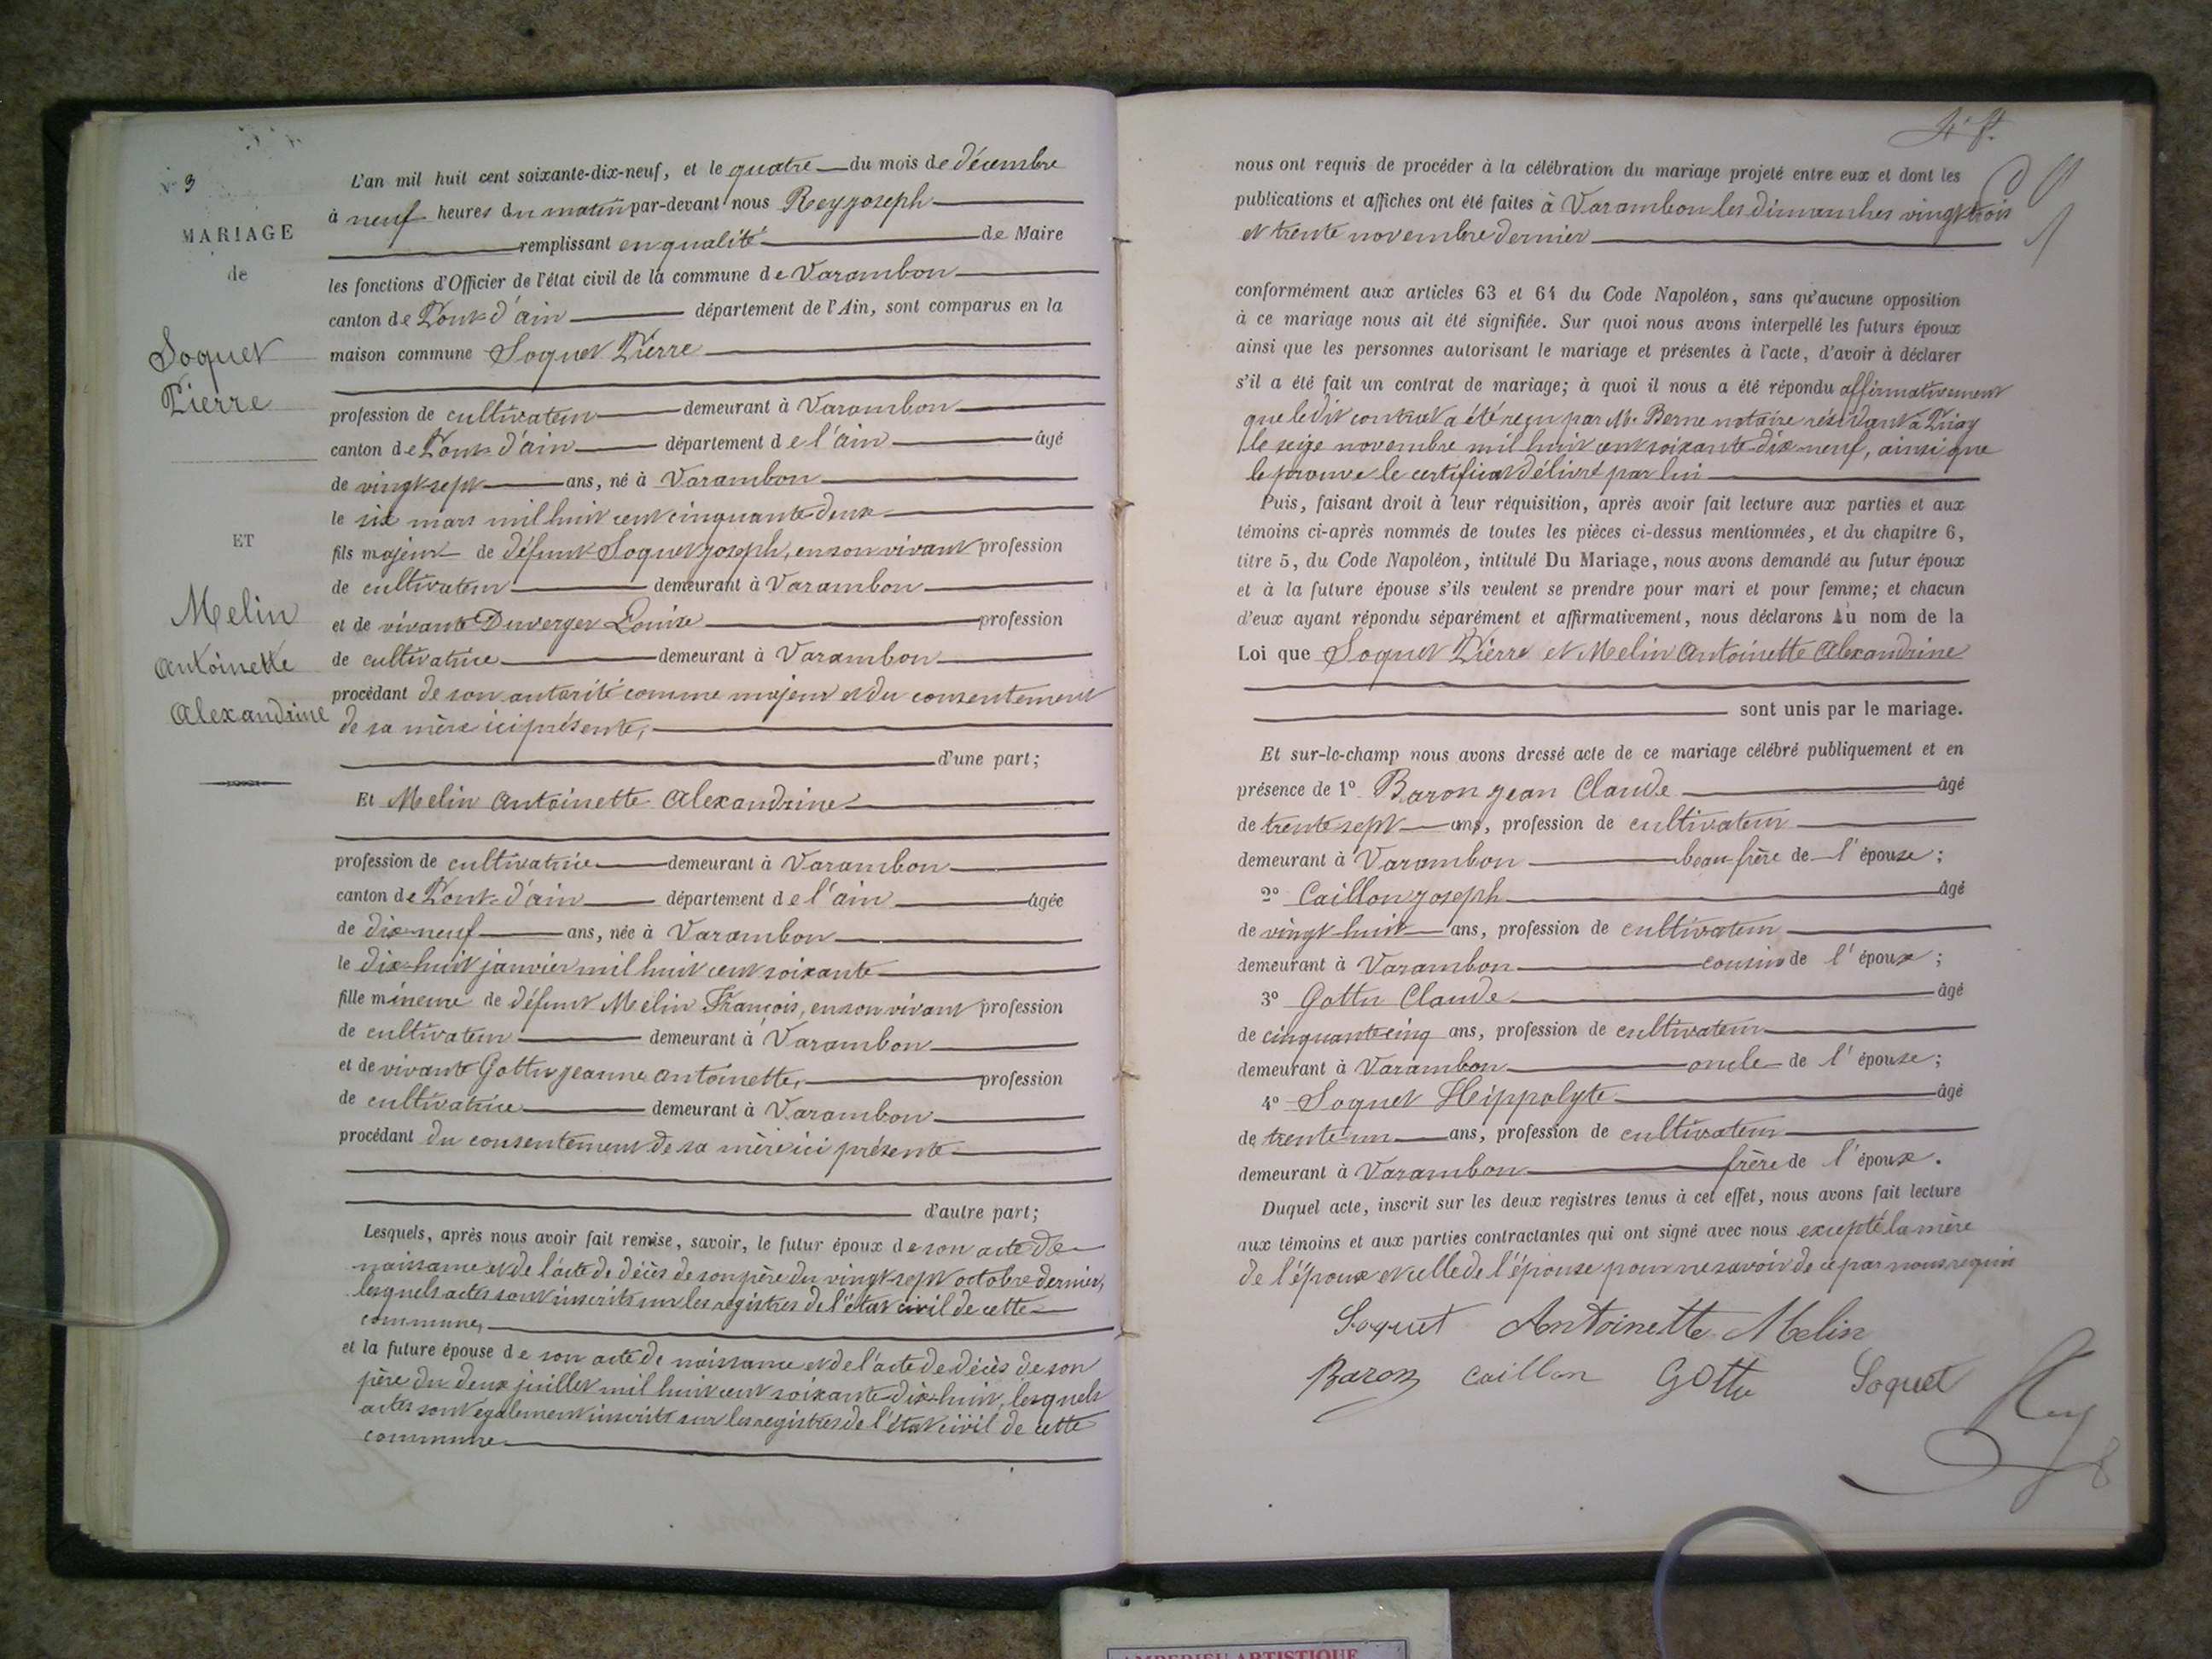 N° 3
MARIAGE
de
Soquet
Pierre
ET
Melin
Antoinette
Alexandrine
L'an mil huit cent soixante-dix-neuf, et le quatre du mois de décembre
à neuf heures du matin par-devant nous Rey Joseph
remplissant en qualité de Maire
les fonctions d'Officier de l'état civil de la commune de Varambon
canton de Pont-d'ain département de l'Ain, sont comparus en la
maison commune Soquet Pierre
profession de cultivateur demeurant à Varambon
canton de Pont-d'ain département de l'ain âgé
de vingt sept ans, né à Varambon
le six mars mil huit cent cinquante-deux
fils majeur de défunt Soquet Joseph, en son vivant profession
de cultivateur demeurant à Varambon
et de vivante Duverger Louise profession
de cultivatrice demeurant à Varambon
procédant de son autorité comme majeur et du consentement
de sa mère ici présente,
d'une part;
Et Melin Antoinette Alexandrine
profession de cultivatrice demeurant à Varambon
canton de Pont-d'ain département de l'ain âgée
de dix-neuf ans, née à Varambon
le dix-huit janvier mil huit cent soixante
fille mineure de défunt Melin François, en son vivant profession
de cultivateur demeurant à Varambon
et de vivante Gottu Jeanne Antoinette, profession
de cultivatrice demeurant à Varambon
procédant du consentement de sa mère ici présente
d'autre part;
Lesquels, après nous avoir fait remise, savoir, le futur époux de son acte de
naissance et de l'acte de décès de son père du vingt-sept octobre dernier,
lesquels actes sont inscrits sur les registres de l'état civil de cette
commune,
et la future épouse de son acte de naissance et de l'acte de décès de son
père du deux juillet mil huit cent soixante-dix-huit, lesquels
actes sont egalement inscrits sur les registres de l'état civil de cette
commune
nous ont requis de procéder à la célébration du mariage projeté entre eux et dont les
publications et affiches ont été faites à Varambon les dimanches vingt trois
et trente novembre dernier
conformément aux articles 63 et 64 du Code Napoléon, sans qu'aucune opposition
à ce mariage nous ait été signifiée. Sur quoi nous avons interpellé les futurs époux
ainsi que les personnes autorisant le mariage et présentes à l'acte, d'avoir à déclarer
s'il a été fait un contrat de mariage; à quoi il nous a été répondu affirmativement
que le dit contrat a été reçu par Me Berne notaire résidant à Priay
le seize novembre mil huit cent soixante-dix-neuf, ainsi que
le prouve le certificat délivré par lui
Puis, faisant droit à leur réquisition, après avoir fait lecture aux parties et aux
témoins ci-après nommés de toutes les pièces ci-dessus mentionnées, et du chapitre 6,
titre 5, du Code Napoléon, intitulé Du Mariage, nous avons demandé au futur époux
et à la future épouse s'ils veulent se prendre pour mari et pour femme; et chacun
d'eux ayant répondu séparément et affirmativement, nous déclarons Au nom de la
Loi que Soquet Pierre et Melin Antoinette Alexandrine
sont unis par le mariage.
Et sur-le-champ nous avons dressé acte de ce mariage célébré publiquement et en
présence de 1° Baron Jean Claude âgé
de trente sept ans, profession de cultivateur
demeurant à Varambon beau-frère de l'épouse;
2° Caillon Joseph âgé
de vingt-huit ans, profession de cultivateur
demeurant à Varambon cousin de l'époux;
3° Gottu Claude âgé
de cinquante-cinq ans, profession de cultivateur
demeurant à Varambon oncle de l'épouse;
4° Soquet Heippolyte âgé
de trente-un ans, profession de cultivateur
demeurant à Varambon frère de l'époux.
Duquel acte, inscrit sur les deux registres tenus à cet effet, nous avons fait lecture
aux témoins et aux parties contractantes qui ont signé avec nous excepté la mère
de l'époux et celle de l'épouse pour ne savoir de ce par nous requis
Soquet Antoinette Melin
Baron Caillon Gottu Soquet Rey
AMBERIEU ARTISTIQUE